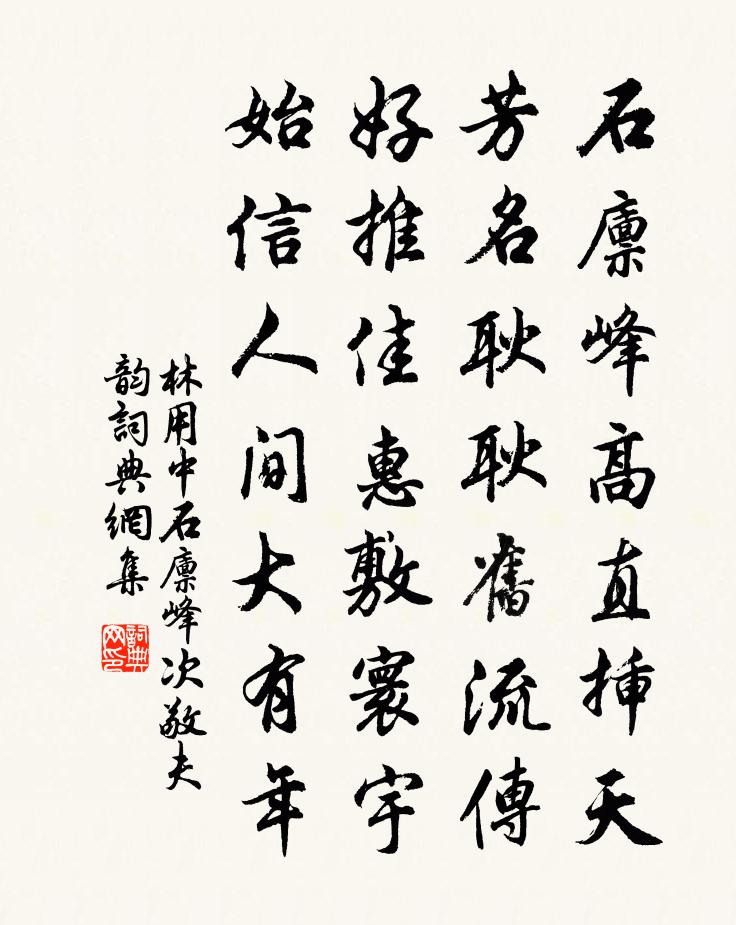 石廪峰高直揷天
芳名耿耿舊流傳
好推佳惠敷寰宇
始信人間大有年
林用中石廪峰次敬夫
韵詞典網集
詞典网印